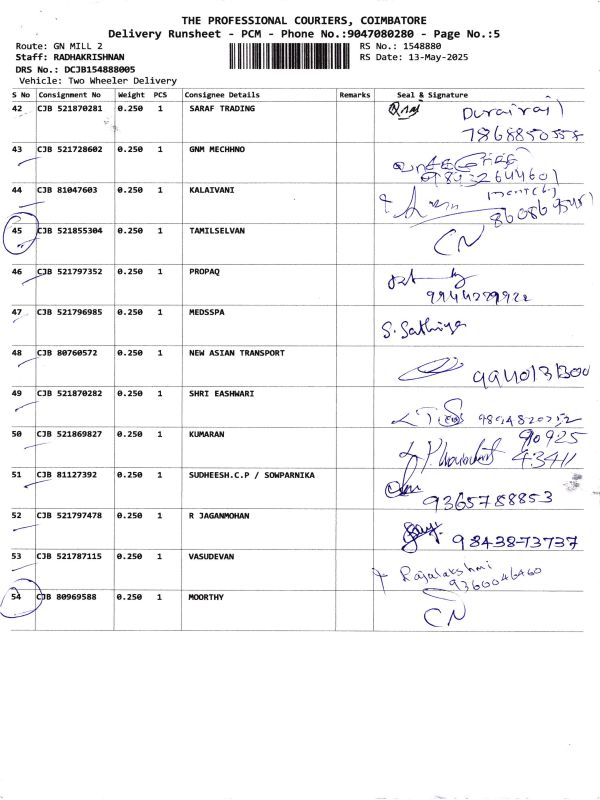 THE PROFESSIONAL COURIERS, COIMBATORE
Delivery Runsheet - PCM - Phone No.:9047080280 - Page No.:5
Route: GN MILL 2 RS No.: 1548880
Staff: RADHAKRISHNAN RS Date: 13-May-2025
DRS No.: DCJB154888005
Vehicle: Two Wheeler Delivery
S No Consignment No Weight PCS Consignee Details Remarks Seal & Signature
42 CJB 521870281 0.250 1 SARAF TRADING Durairaj
7868850558
43 CJB 521728602 0.250 1 GNM MECHHNO
44 CJB 81047603 0.250 1 KALAIVANI
45 CJB 521855304 0.250 1 TAMILSELVAN CN
46 CJB 521797352 0.250 1 PROPAQ
9944279922
47 CJB 521796985 0.250 1 MEDSSPA S. Sathiya
48 CJB 80760572 0.250 1 NEW ASIAN TRANSPORT 9940131300
49 CJB 521870282 0.250 1 SHRI EASHWARI 9894820752
50 CJB 521869827 0.250 1 KUMARAN 90925
43411
51 CJB 81127392 0.250 1 SUDHEESH.C.P / SOWPARNIKA 9365788853
52 CJB 521797478 0.250 1 R JAGANMOHAN 98438-73737
53 CJB 521787115 0.250 1 VASUDEVAN Rajalakshmi
9360046460
54 CJB 80969588 0.250 1 MOORTHY CN